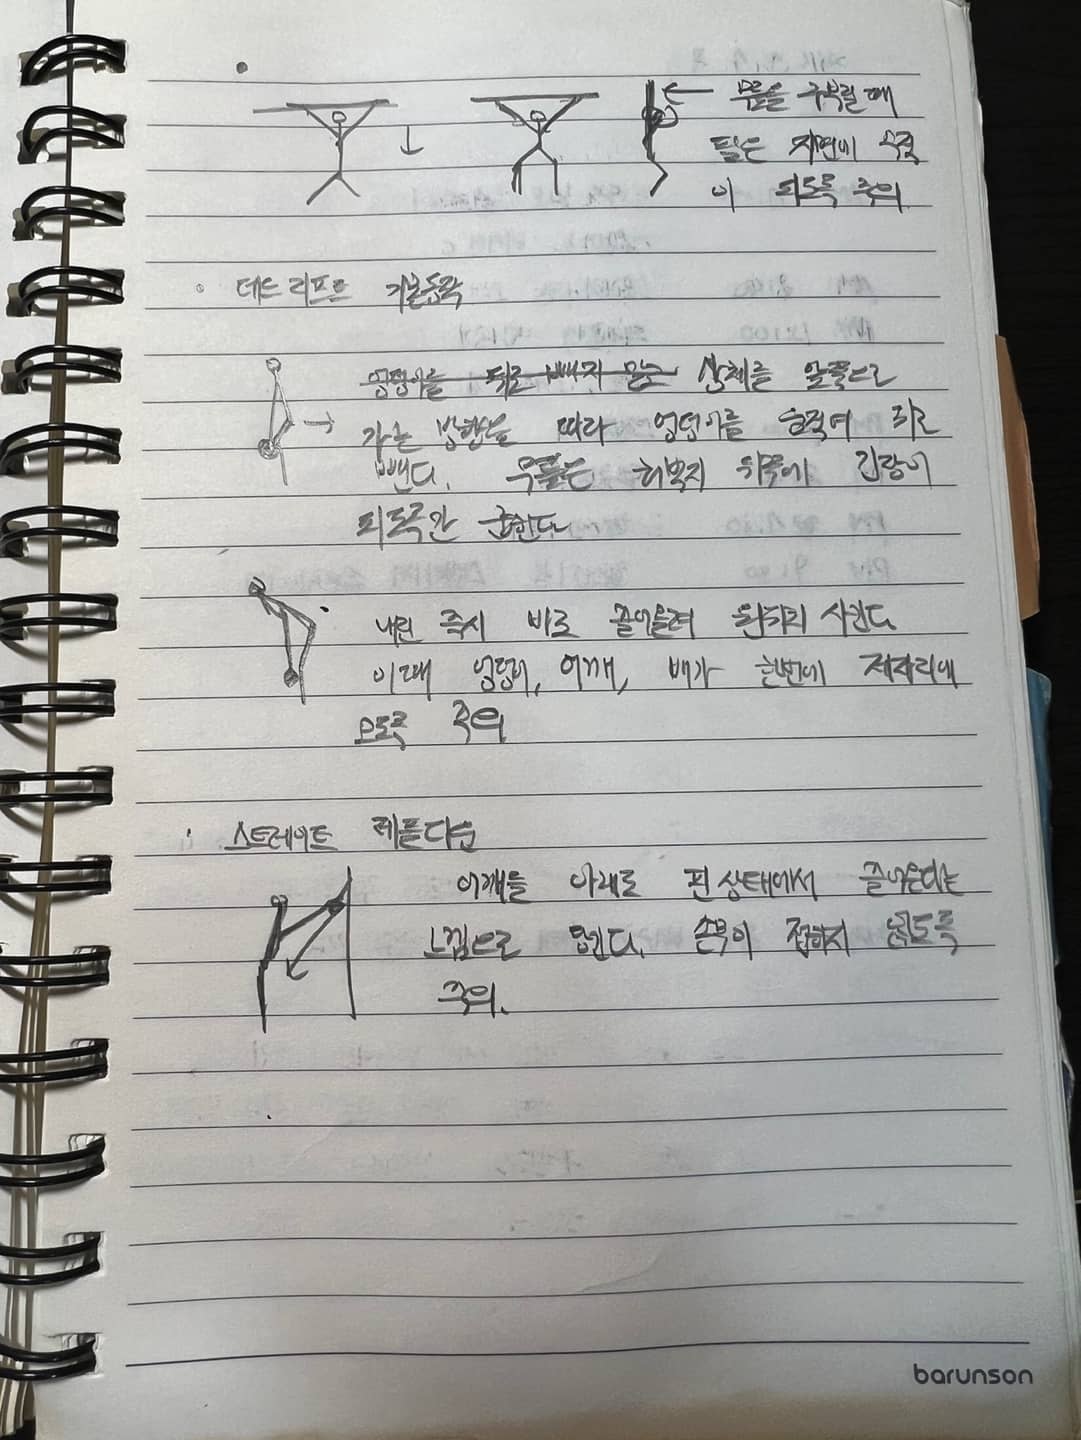 무릎을 구부릴 때
팔은 지면에 수직
이 되도록 주의.
데드리프트 기본동작
엉덩이를 뒤로 빼지 말고 상체를 앞쪽으로
가는 방향을 따라 엉덩이를 움직여 뒤로
뺀다. 무릎은 허벅지 뒤쪽에 긴장이
되도록만 굽힌다.
내린 즉시 바로 끌어올려 원위치 시킨다.
이때 엉덩이, 어깨, 배가 한번에 제자리에
오도록 주의
스트레이트 레플다운
어깨를 아래로 핀 상태에서 끌어온다는
느낌으로 당긴다. 손목이 접히지 않도록
주의.
barunson